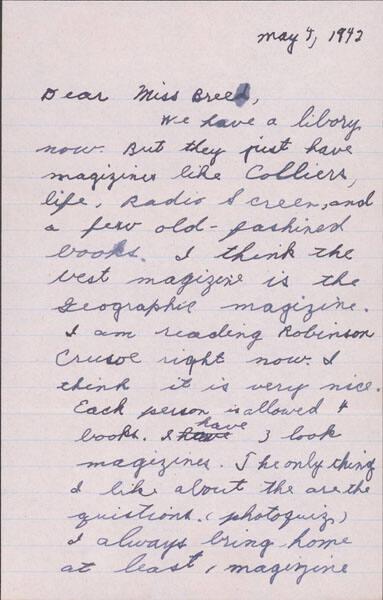 May 4, 1942
Dear Miss Breed,
We have a libory
now. But they just have
magizines like Colliers,
life, Radio Screen, and
a few old-fashined
books. I think the
best magizine is the
Geographic magizine.
I am reading Robinson
Crusoe right now. I
think it is very nice.
Each person is allowed 4
books. I have 3 look
magizines. The only thing
I like about the are the
quistions. (photoquiz)
I always bring home
at least 1 magizine